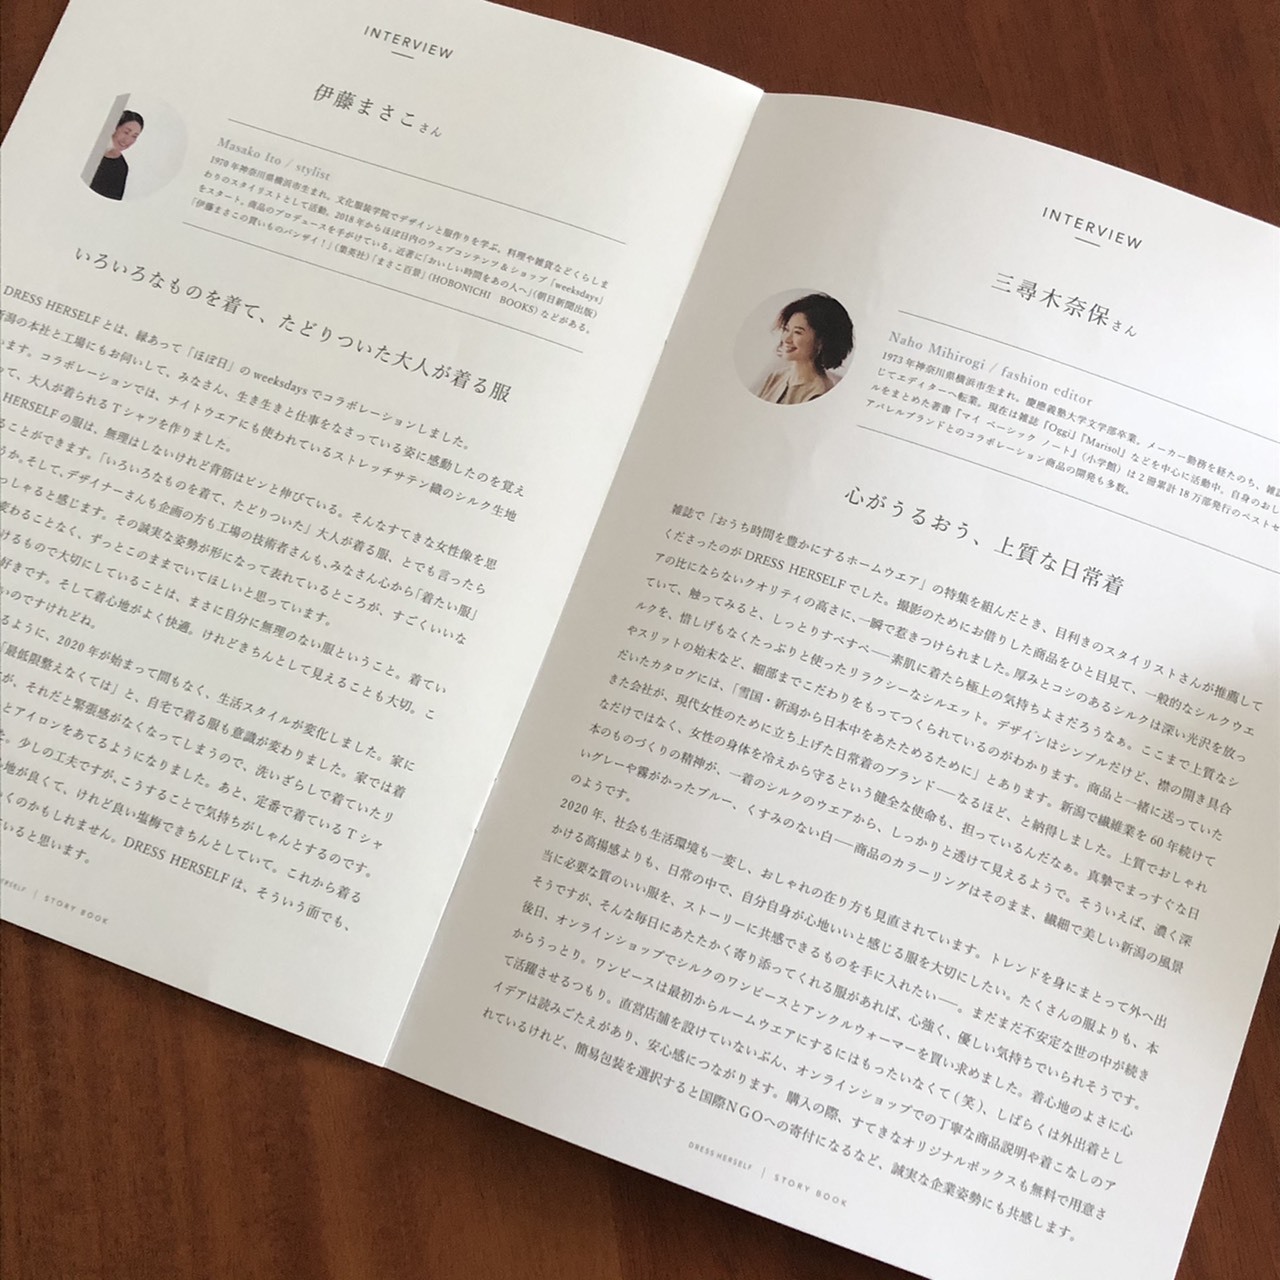 INTERVIEW
伊藤まさこさん
Masako Ito / stylist
1970年神奈川県横浜市生まれ。文化服装学院でデザインと服作りを学ぶ。料理や雑貨などくらしま
わりのスタイリストとして活動。2018年からほぼ日内のウェブコンテンツ&ショップ「weeksdays」
をスタート。商品のプロデュースを手がけている。近著に「おいしい時間をあの人へ」(朝日新聞出版)
「伊藤まさこの買いものバンザイ!」(集英社)「まさこ百景」(HOBONICHI BOOKS)などがある。
いろいろなものを着て、たどりついた大人が着る服
DRESS HERSELFとは、縁あって「ほぼ日」のweeksdaysでコラボレーションしました。
新潟の本社と工場にもお伺いして、みなさん、生き生きと仕事をなさっている姿に感動したのを覚え
います。コラボレーションでは、ナイトウエアにも使われているストレッチサテン織のシルク生地
って、大人が着られるTシャツを作りました。
HERSELFの服は、無理はしないけれど背筋はピンと伸びている。そんなすてきな女性像を思
ることができます。「いろいろなものを着て、たどりついた」大人が着る服、とでも言ったら
うか。そして、デザイナーさんも企画の方も工場の技術者さんも、みなさん心から「着たい服」
っしゃると感じます。その誠実な姿勢が形になって表れているところが、すごくいいな
変わることなく、ずっとこのままでいてほしいと思っています。
けるもので大切にしていることは、まさに自分に無理のない服ということ。着てい
好きです。そして着心地がよく快適。けれどきちんとして見えることも大切。こ
いのですけれどね。
るように、2020年が始まって間もなく、生活スタイルが変化しました。家に
「最低限整えなくては」と、自宅で着る服も意識が変わりました。家では着
が、それだと緊張感がなくなってしまうので、洗いざらしで着ていたリ
とアイロンをあてるようになりました。あと、定番で着ているTシャ
た。少しの工夫ですが、こうすることで気持ちがしゃんとするのです。
地が良くて、けれど良い塩梅できちんとしていて。これから着る
くのかもしれません。DRESS HERSELFは、そういう面でも、
いると思います。
HERSELF | STORY BOOK
INTERVIEW
三尋木奈保さん
Naho Mihirogi / fashion editor
1973年神奈川県横浜市生まれ。慶應義塾大学文学部卒業。メーカー勤務を経たのち、雑誌
じてエディターへ転業。現在は雑誌『Oggi』『Marisol』などを中心に活動中。自身のおし
ルをまとめた著書『マイ ベーシック ノート』(小学館)は2冊累計18万部発行のベストセ
アパレルブランドとのコラボレーション商品の開発も多数。
心がうるおう、上質な日常着
雑誌で「おうち時間を豊かにするホームウエア」の特集を組んだとき、目利きのスタイリストさんが推薦して
くださったのがDRESS HERSELFでした。撮影のためにお借りした商品をひと目見て、一般的なシルクウエ
アの比にならないクオリティの高さに、一瞬で惹きつけられました。厚みとコシのあるシルクは深い光沢を放っ
ていて、触ってみると、しっとりすべすべ――素肌に着たら極上の気持ちよさだろうなぁ。ここまで上質なシ
ルクを、惜しげもなくたっぷりと使ったリラクシーなシルエット。デザインはシンプルだけど、襟の開き具合
やスリットの始末など、細部までこだわりをもってつくられているのがわかります。商品と一緒に送っていた
だいたカタログには、「雪国・新潟から日本中をあたためるために」とあります。新潟で繊維業を60年続けて
きた会社が、現代女性のために立ち上げた日常着のブランド――なるほど、と納得しました。上質でおしゃれ
なだけではなく、女性の身体を冷えから守るという健全な使命も、担っているんだなぁ。真摯でまっすぐな日
本のものづくりの精神が、一着のシルクのウエアから、しっかりと透けて見えるようで。そういえば、濃く深
いグレーや霧がかったブルー、くすみのない白――商品のカラーリングはそのまま、繊細で美しい新潟の風景
のようです。
2020年、社会も生活環境も一変し、おしゃれの在り方も見直されています。トレンドを身にまとって外へ出
かける高揚感よりも、日常の中で、自分自身が心地いいと感じる服を大切にしたい。たくさんの服よりも、本
当に必要な質のいい服を、ストーリーに共感できるものを手に入れたい――。まだまだ不安定な世の中が続き
そうですが、そんな毎日にあたたかく寄り添ってくれる服があれば、心強く、優しい気持ちでいられそうです。
後日、オンラインショップでシルクのワンピースとアンクルウォーマーを買い求めました。着心地のよさに心
からうっとり。ワンピースは最初からルームウエアにするにはもったいなくて(笑)、しばらくは外出着とし
て活躍させるつもり。直営店舗を設けていないぶん、オンラインショップでの丁寧な商品説明や着こなしのア
イデアは読みごたえがあり、安心感につながります。購入の際、すてきなオリジナルボックスも無料で用意さ
れているけれど、簡易包装を選択すると国際NGOへの寄付になるなど、誠実な企業姿勢にも共感します。
DRESS HERSELF | STORY BOOK